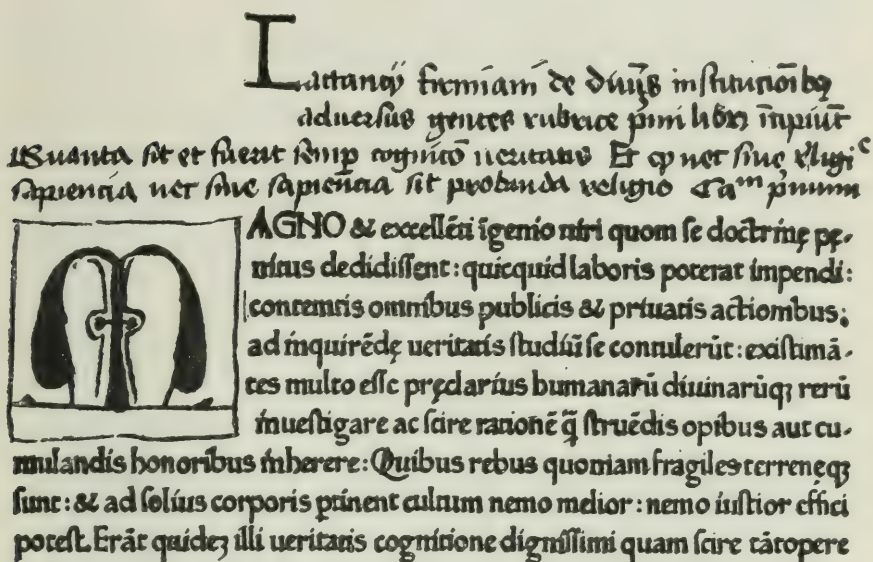 Lactancij firmiani de diuijs institucionibꝫ
aduersus gentes rubrice primi libri incipiūt
Quanta sit et fuerit semp cognitō ueritatis Et ꝙ nec sine religiᶜ
sapiencia nec sine sapiencia sit probanda religio Caᵐ primum
MAGNO & excellēti īgenio uiri quom se doctrinę pę-
nitus dedidissent: quicquid laboris poterat impendi:
contemtis omnibus publicis & priuatis actionibus;
ad inquirēdę ueritatis studiū se contulerūt: existimā-
tes multo esse pręclarius humanarū diuinarūqꝫ rerū
inuestigare ac scire rationē q̄ struēdis opibus aut cu-
mulandis honoribus inherere: Quibus rebus quoniam fragiles terreneqꝫ
sunt: & ad solius corporis ꝑtinent cultum nemo melior: nemo iustior effici
potest. Erāt quideꝫ illi ueritatis cognitione dignissimi quam scire tātopere